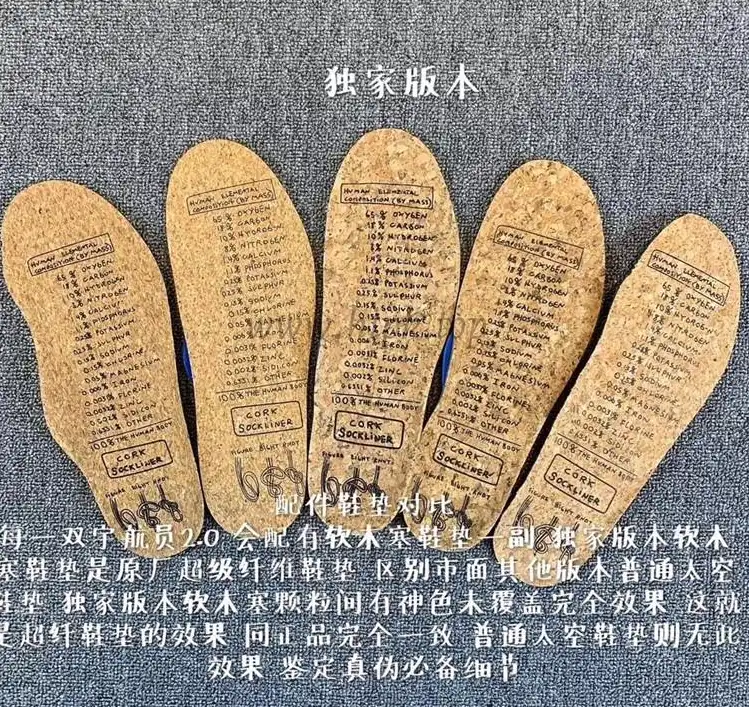 独家版本
HUMAN ELEMENTAL
COMPOSITION (BY MASS)
65% OXYGEN
18% CARBON
10% HYDROGEN
3% NITROGEN
1.4% CALCIUM
1.1% PHOSPHORUS
0.25% POTASSIUM
0.25% SULPHUR
0.15% SODIUM
0.15% CHLORINE
0.05% MAGNESIUM
0.006% IRON
0.0037% FLORINE
0.0032% ZINC
0.002% SILICON
0.6351% OTHER
100% THE HUMAN BODY
CORK
SOCKLINER
FIGURE EIGHT KNOT
配件鞋垫对比
每一双宇航员2.0 会配有软木塞鞋垫一副 独家版本软木
塞鞋垫是原厂超级纤维鞋垫 区别市面其他版本普通太空
鞋垫 独家版本软木塞颗粒间有神色未覆盖完全效果 这就
是超纤鞋垫的效果 同正品完全一致 普通太空鞋垫则无此
效果 鉴定真伪必备细节